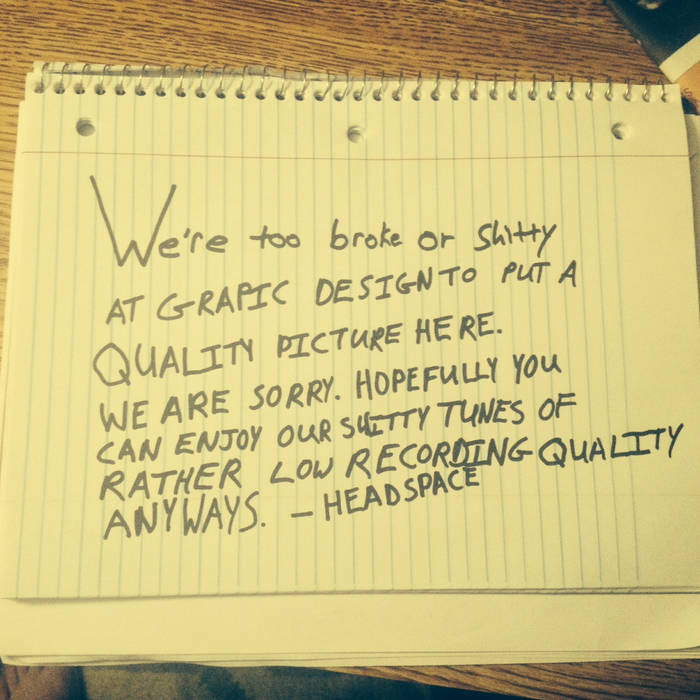 We're too broke or shitty
AT GRAPIC DESIGN TO PUT A
QUALITY PICTURE HERE.
WE ARE SORRY. HOPEFULLY YOU
CAN ENJOY OUR SHITTY TUNES OF
RATHER LOW RECORDING QUALITY
ANYWAYS. – HEADSPACE